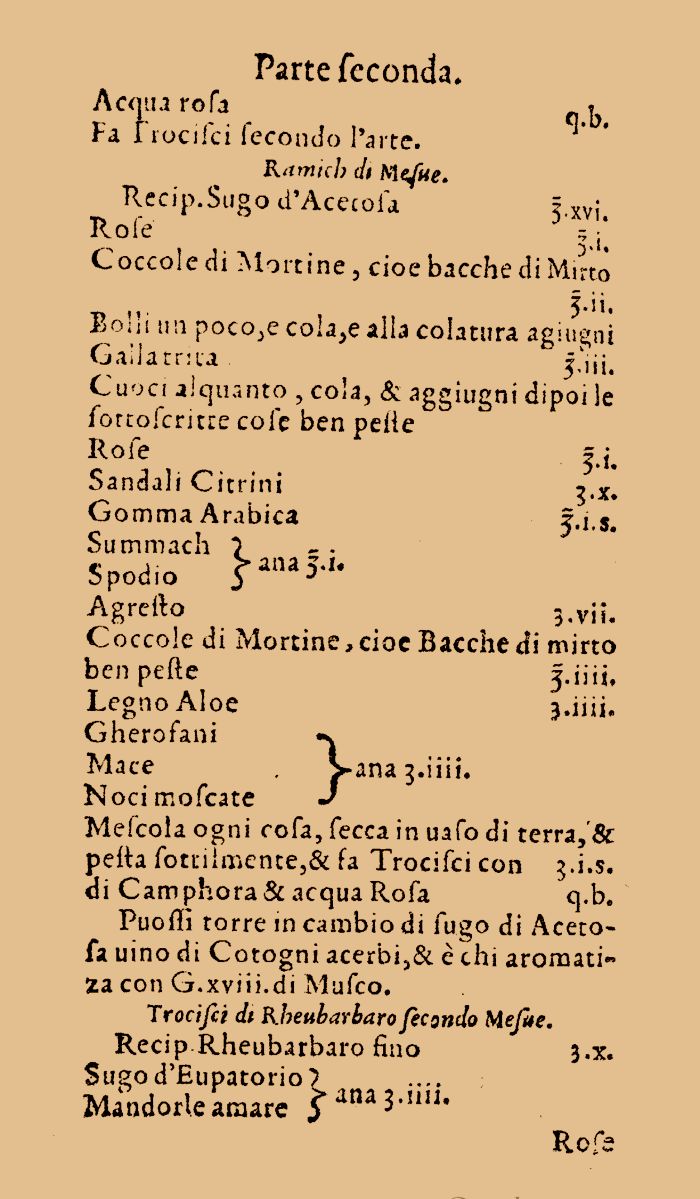 Parte ſeconda.
Acqua roſa q.b.
Fa Trociſci ſecondo l'arte.
Ramich di Meſue.
Recip.Sugo d'Acetoſa ℥.xvi.
Roſe ℥.i.
Coccole di Mortine, cioe bacche di Mirto
℥.ii.
Bolli un poco,e cola,e alla colatura agiugni
Gallatrita ℥.iii.
Cuoci alquanto, cola, & aggiugni dipoi le
ſottoſcritte coſe ben peſte
Roſe ℥.i.
Sandali Citrini ʒ.x.
Gomma Arabica ℥.i.s.
Summach
Spodio } ana ℥.i.
Agreſto ʒ.vii.
Coccole di Mortine, cioe Bacche di mirto
ben peſte ℥.iiii.
Legno Aloe ʒ.iiii.
Gherofani
Mace } ana ʒ.iiii.
Noci moſcate
Meſcola ogni coſa, ſecca in uaſo di terra, &
peſta ſottilmente,& fa Trociſci con ʒ.i.s.
di Camphora & acqua Roſa q.b.
Puoſſi torre in cambio di ſugo di Aceto-
ſa uino di Cotogni acerbi,& è chi aromati-
za con G.xviii.di Muſco.
Trociſci di Rheubarbaro ſecondo Meſue.
Recip.Rheubarbaro fino ʒ.x.
Sugo d'Eupatorio
Mandorle amare } ana ʒ.iiii.
Roſe